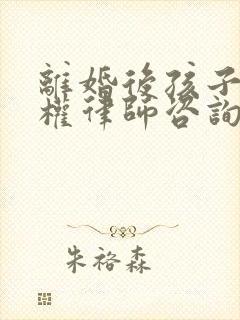 離婚後孩子
權律師咨詢
朱裕森